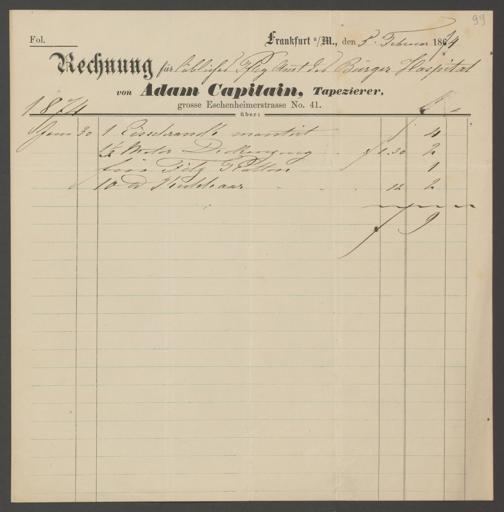 99
Fol.
Frankfurt a/M., den 5. Februar 1874
Rechnung für löbliches Pfleg Amt des Bürger Hospital
von Adam Capitain, Tapezierer.
grosse Eschenheimerstrasse No. 41.
über:
1874
Janu 30 1 montirt f 4
1½ Meter f 1.30 2
Filz 1
10 12 2
f 9